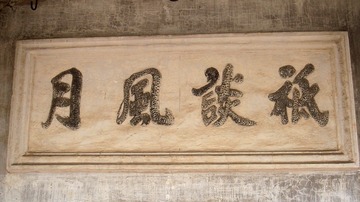 祗談風月